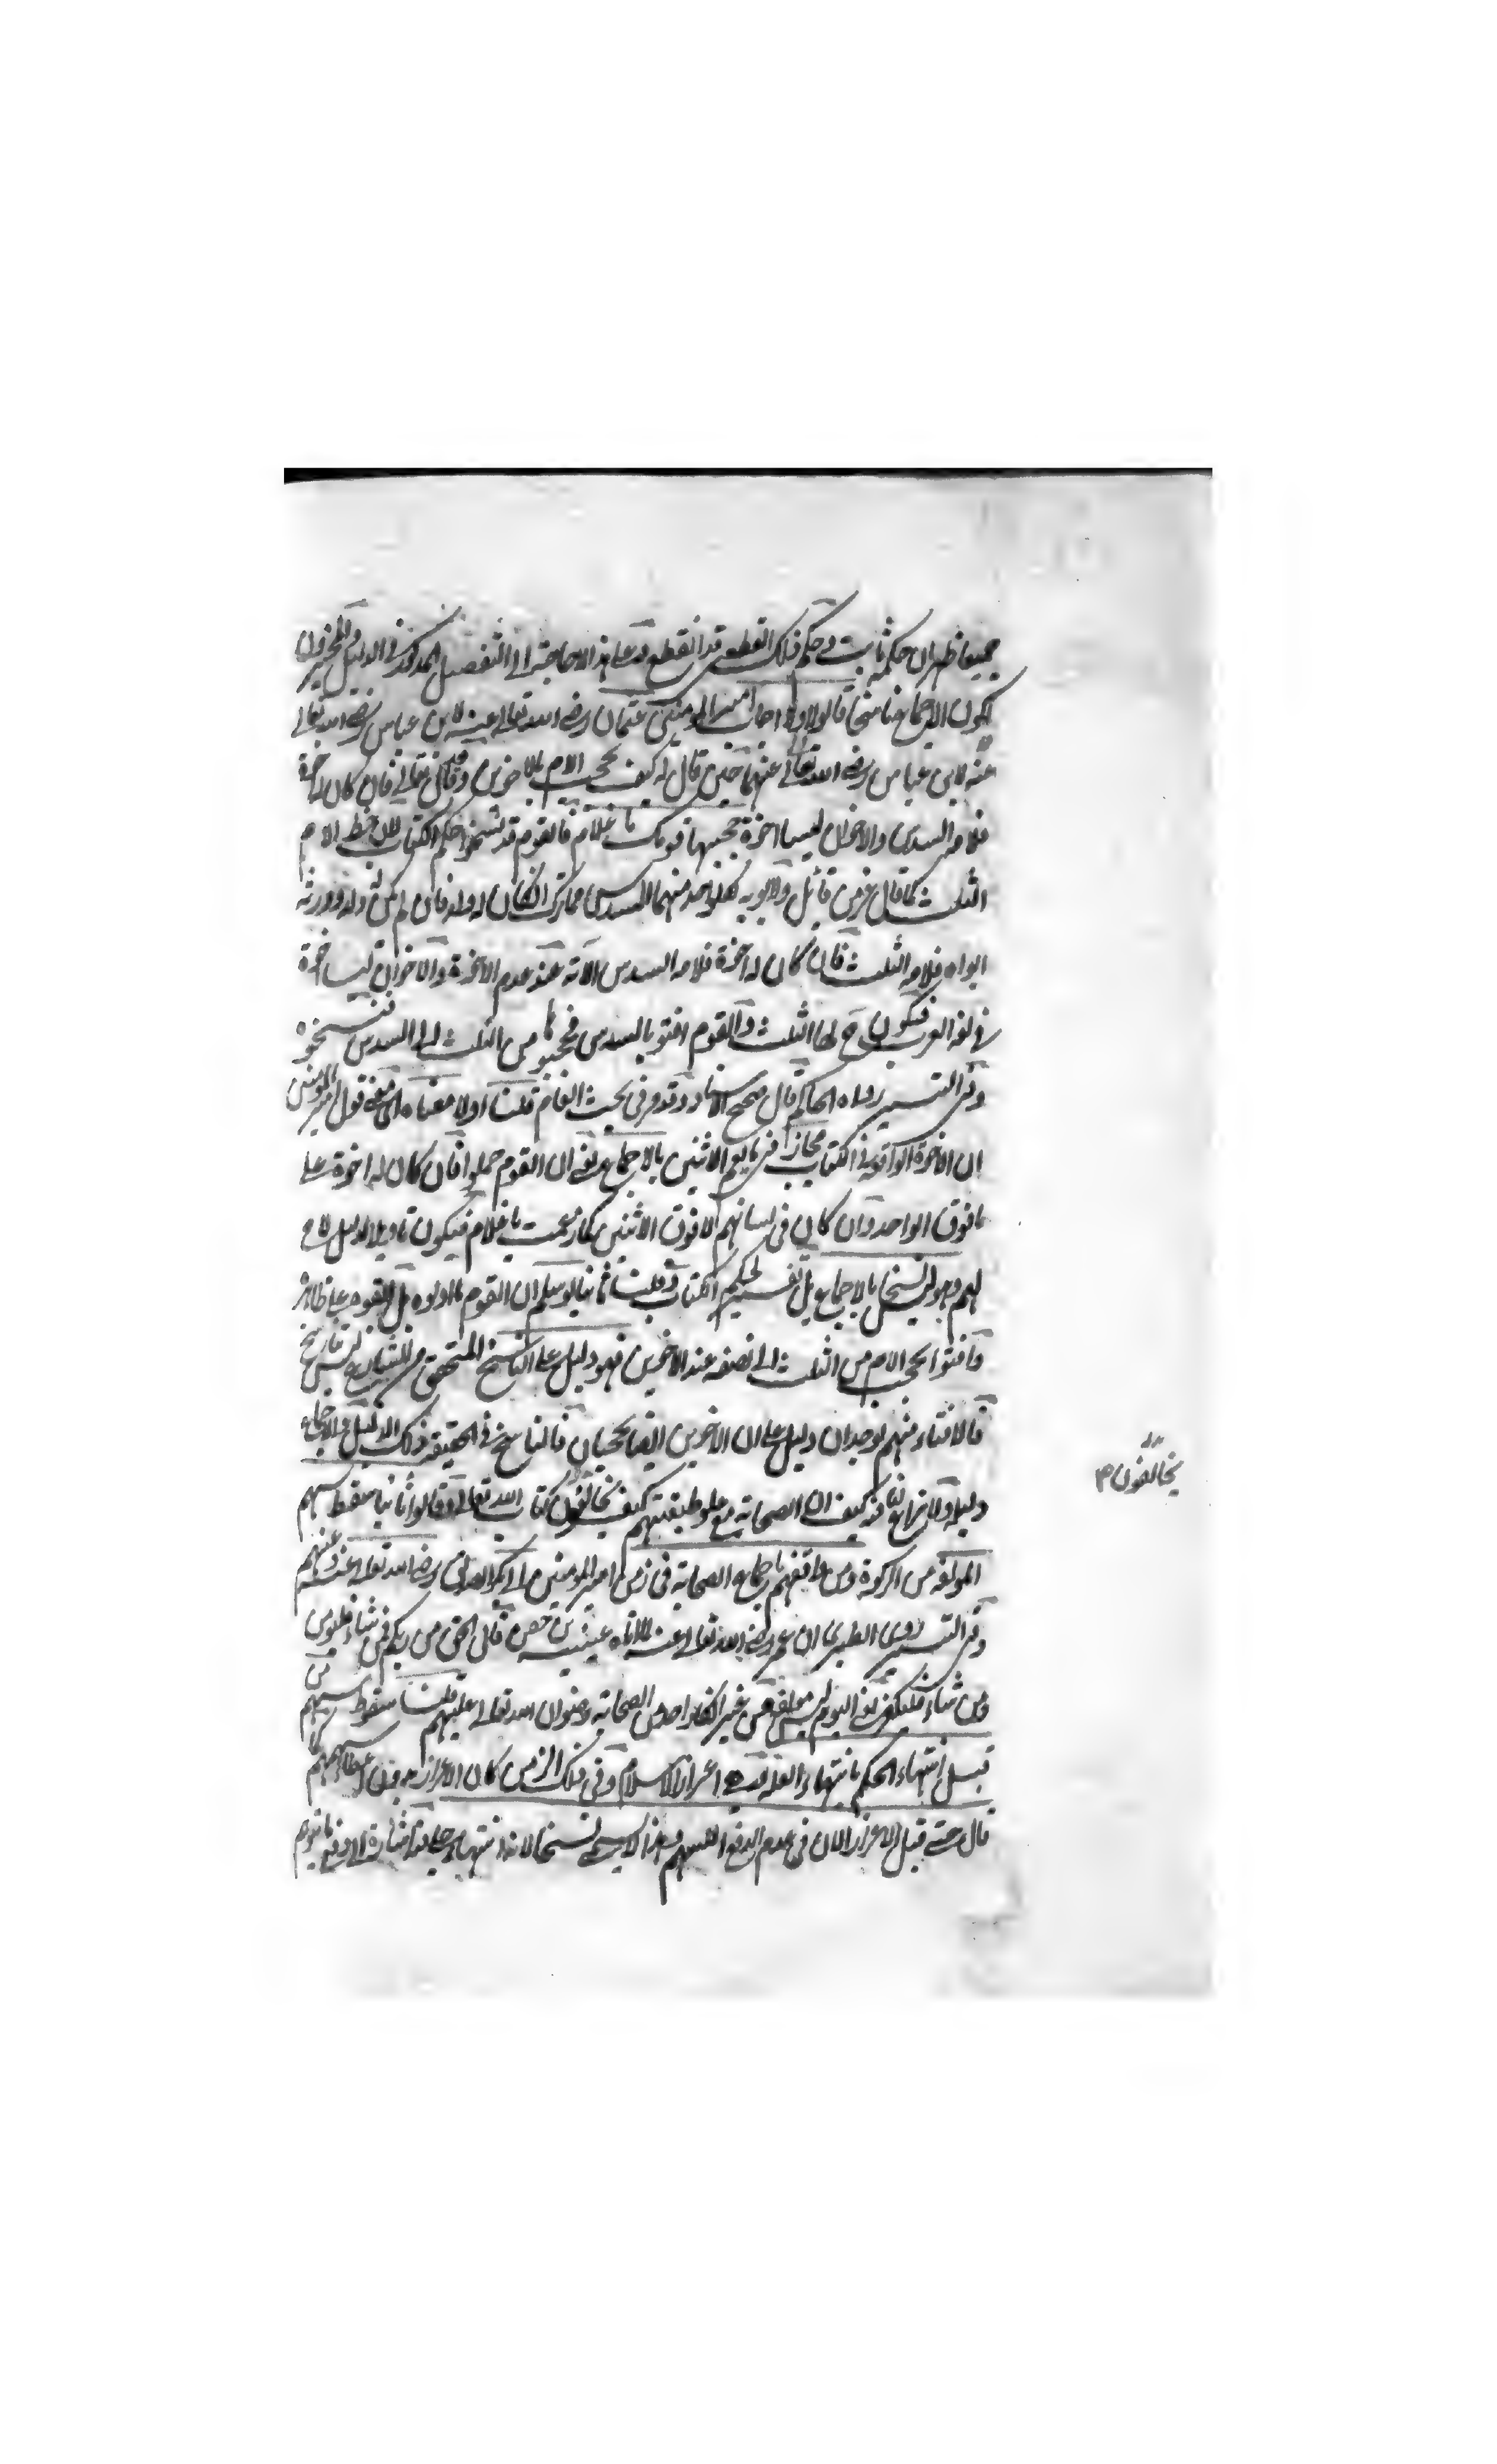 جميعا ظهر ان حكمه ثابت في حكم ذلك القطعي قد انقطع وعلى هذا لا حاجة الى التفصيل المذكور في الدليل والمجيزون
لكون الاجماع ناسخا قالوا اولا اجاب امير المؤمنين عثمان رضى الله تعالى عنه لابن عباس رضى الله تعالى
عنه لابن عباس رضى الله تعالى عنهما حين قال له كيف تحجب الام بالاخوين وقد قال تعالى فان كان له اخوة
فلامه السدس والاخوان ليسا اخوة حجبها قومك يا غلام فالقوم قد نسخوا حكم الكتاب لان حظ الام
الثلث كما قال عز من قائل ولابويه لكل واحد منهما السدس مما ترك ان كان له ولد فان لم يكن له ولد وورثه
ابواه فلامه الثلث فان كان له اخوة فلامه السدس الآية فعند عدم الاخوة والاخوان ليسا اخوة
في لغة العرب فيكون ح لها الثلث والقوم افتوا بالسدس فحجبوها من الثلث الى السدس فنسخوه
وفى التيسير رواه الحاكم قال صحيح الاسناد وقد مر في بحث العام قلنا اولا معناه اى معنى قول امير المؤمنين
ان الاخوة الواقعة في الكتاب مجاز فيما يعم الاثنين بالاجماع يعنى ان القوم حملوا فان كان له اخوة على
ما فوق الواحد وان كان في لسانهم لما فوق الاثنين كما زعمت يا غلام فيكون تاويلا لدليل لاح
لهم وهو ليس نسخا بالاجماع بل تفسير لحكم الكتاب وقلنا ثانيا لو سلم ان القوم ما اولوه بل ابقوه على ظاهره
وافتوا بحجب الام من الثلث الى نصفه عند الاخوين فهو دليل على الناسخ المتحقق من الشارع
فالافتاء منهم لوجدان دليل على ان الاخوين ايضا يحجبان فالناسخ في الحقيقة ذلك الدليل والاجماع
دليله ولا نزاع لنا فيه كيف ان الصحابة مع علو طبقتهم كيف يخالفون كتاب الله تعالى وقالوا ثانيا سقط سهم
المؤلفة من الزكوة ومن وافقهم باجماع الصحابة فى زمن امير المؤمنين ابى بكر الصديق رضى الله تعالى عنه وعنهم
وفى التيسير روى الطبرى ان عمر رضى الله تعالى عنه لما اتاه عيينة بن حصن قال الحق من ربكم فمن شاء فليؤمن
ومن شاء فليكفر يعنى اليوم ليس مؤلفة من غير انكار احد من الصحابة رضوان الله تعالى عليهم قلنا سقوط سهمهم من
قبيل انتهاء الحكم بانتهاء العلة وهى اعزاز الاسلام وفى ذلك الزمن كان الاعزاز بدون اعطاء سهمهم كما
قال حتى قيل الاعزاز الآن فى عدم الدفع اليهم وهذا لا يسمى نسخا لانه انتهاء
يخالفون م